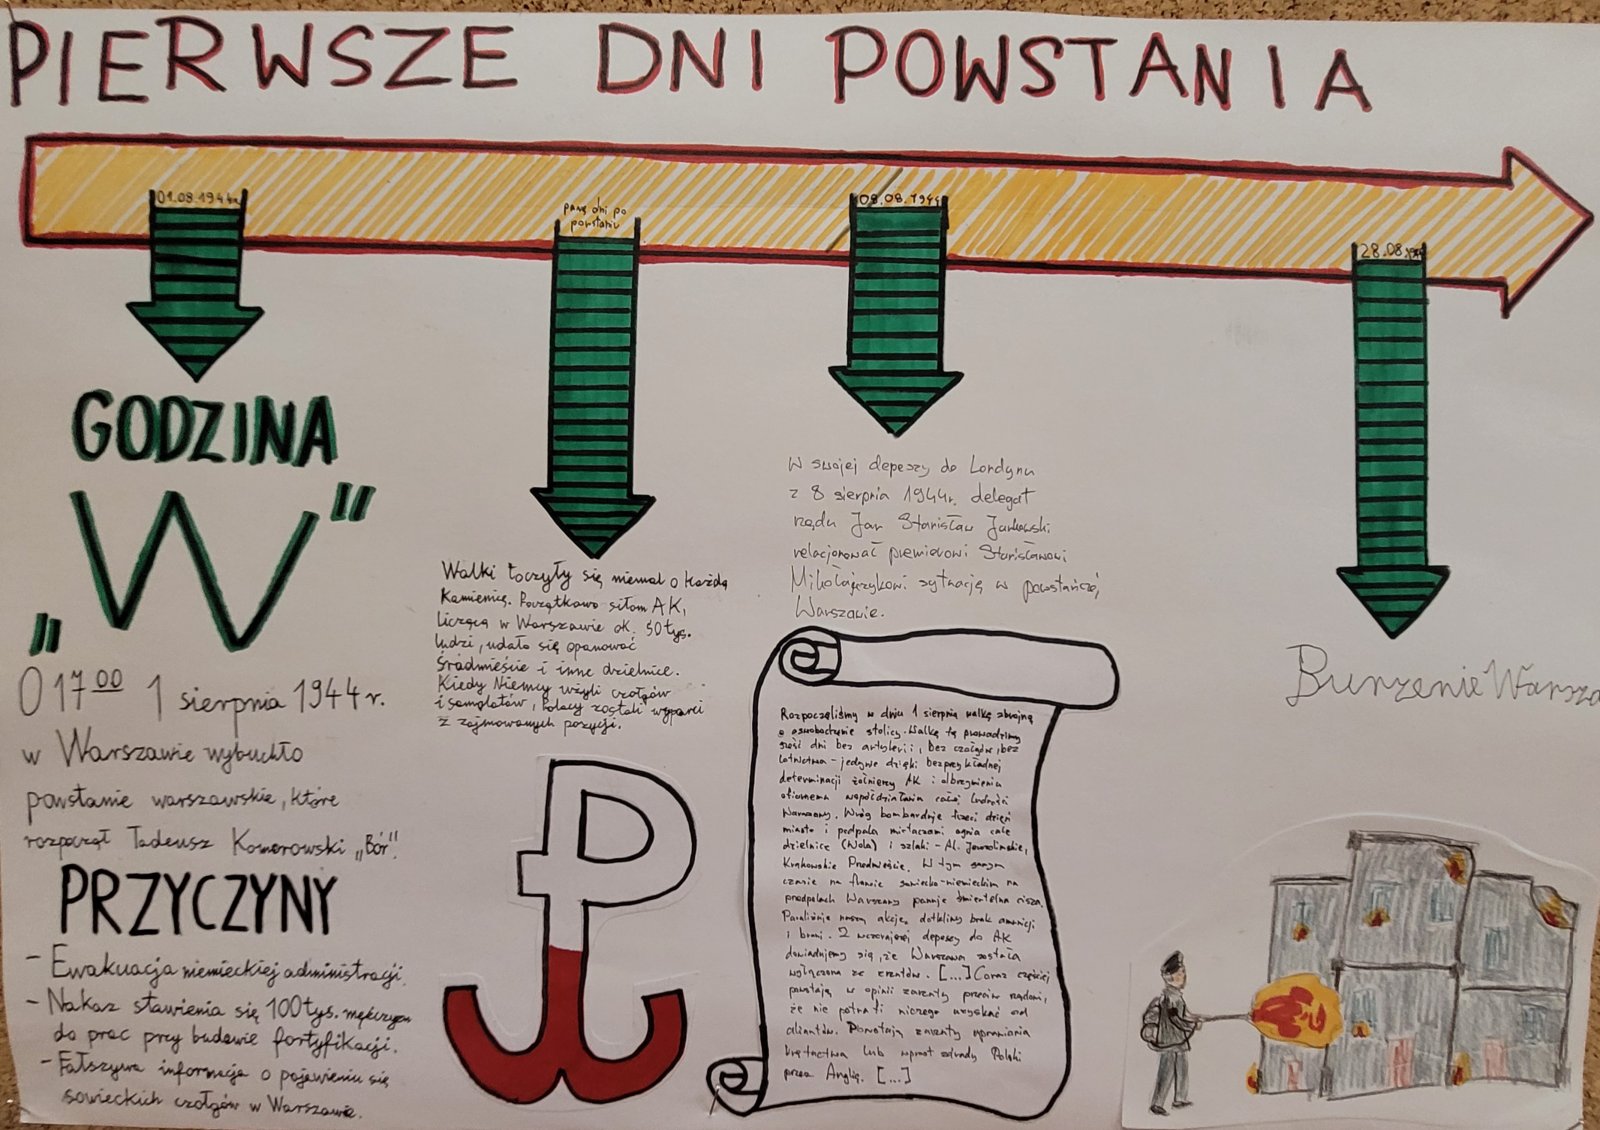 PIERWSZE DNI POWSTANIA
01.08.1944r.
parę dni po
powstaniu
08.08.1944
28.08.1944
GODZINA
„W"
O 17 00 1 sierpnia 1944r.
w Warszawie wybuchło
powstanie warszawskie, które
rozpoczął Tadeusz Komorowski „Bór".
PRZYCZYNY
- Ewakuacja niemieckiej administracji.
- Nakaz stawienia się 100tys. mężczyzn
do prac przy budowie fortyfikacji.
- Fałszywa informacja o pojawieniu się
sowieckich czołgów w Warszawie.
Walki toczyły się niemal o każdą
Kamienicę. Początkowo siłom AK,
liczącą w Warszawie ok. 50tys.
ludzi, udało się opanować
Śródmieście i inne dzielnice.
Kiedy Niemcy użyli czołgów
i samolotów, Polacy zostali wyparci
z zajmowanych pozycji.
W swojej depeszy do Londynu
z 8 sierpnia 1944r. delegat
rządu Jan Stanisław Jankowski
relacjonował premierowi Stanisławowi
Mikołajczykowi sytuację w powstańczej
Warszawie.
Rozpoczęliśmy w dniu 1 sierpnia walkę zbrojną
o oswobodzenie stolicy. Walkę tę prowadzimy
sześć dni bez artylerii, bez czołgów, bez
lotnictwa - jedynie dzięki bezprzykładnej
determinacji żołnierzy AK i olbrzymiemu
ofiarnemu współdziałaniu całej ludności
Warszawy. Wróg bombarduje trzeci dzień
miasto i podpala miotaczami ognia całe
dzielnice (Wola) i szlaki - Al. Jerozolimskie,
Krakowskie Przedmieście. W tym samym
czasie na froncie sowiecko-niemieckim na
przedpolach Warszawy panuje śmiertelna cisza.
Paraliżuje naszą akcję, dotkliwy brak amunicji
i broni. Z wczorajszej depeszy do AK
dowiadujemy się, że Warszawa została
wyłączona ze zrzutów. [...] Coraz częściej
powstają w opinii zarzuty przeciw rządowi,
że nie potrafi niczego uzyskać od
aliantów. Powstają zarzuty uprawiania
krętactwa lub wprost zdrady Polski
przez Anglię. [...]
Burzenie Warsza